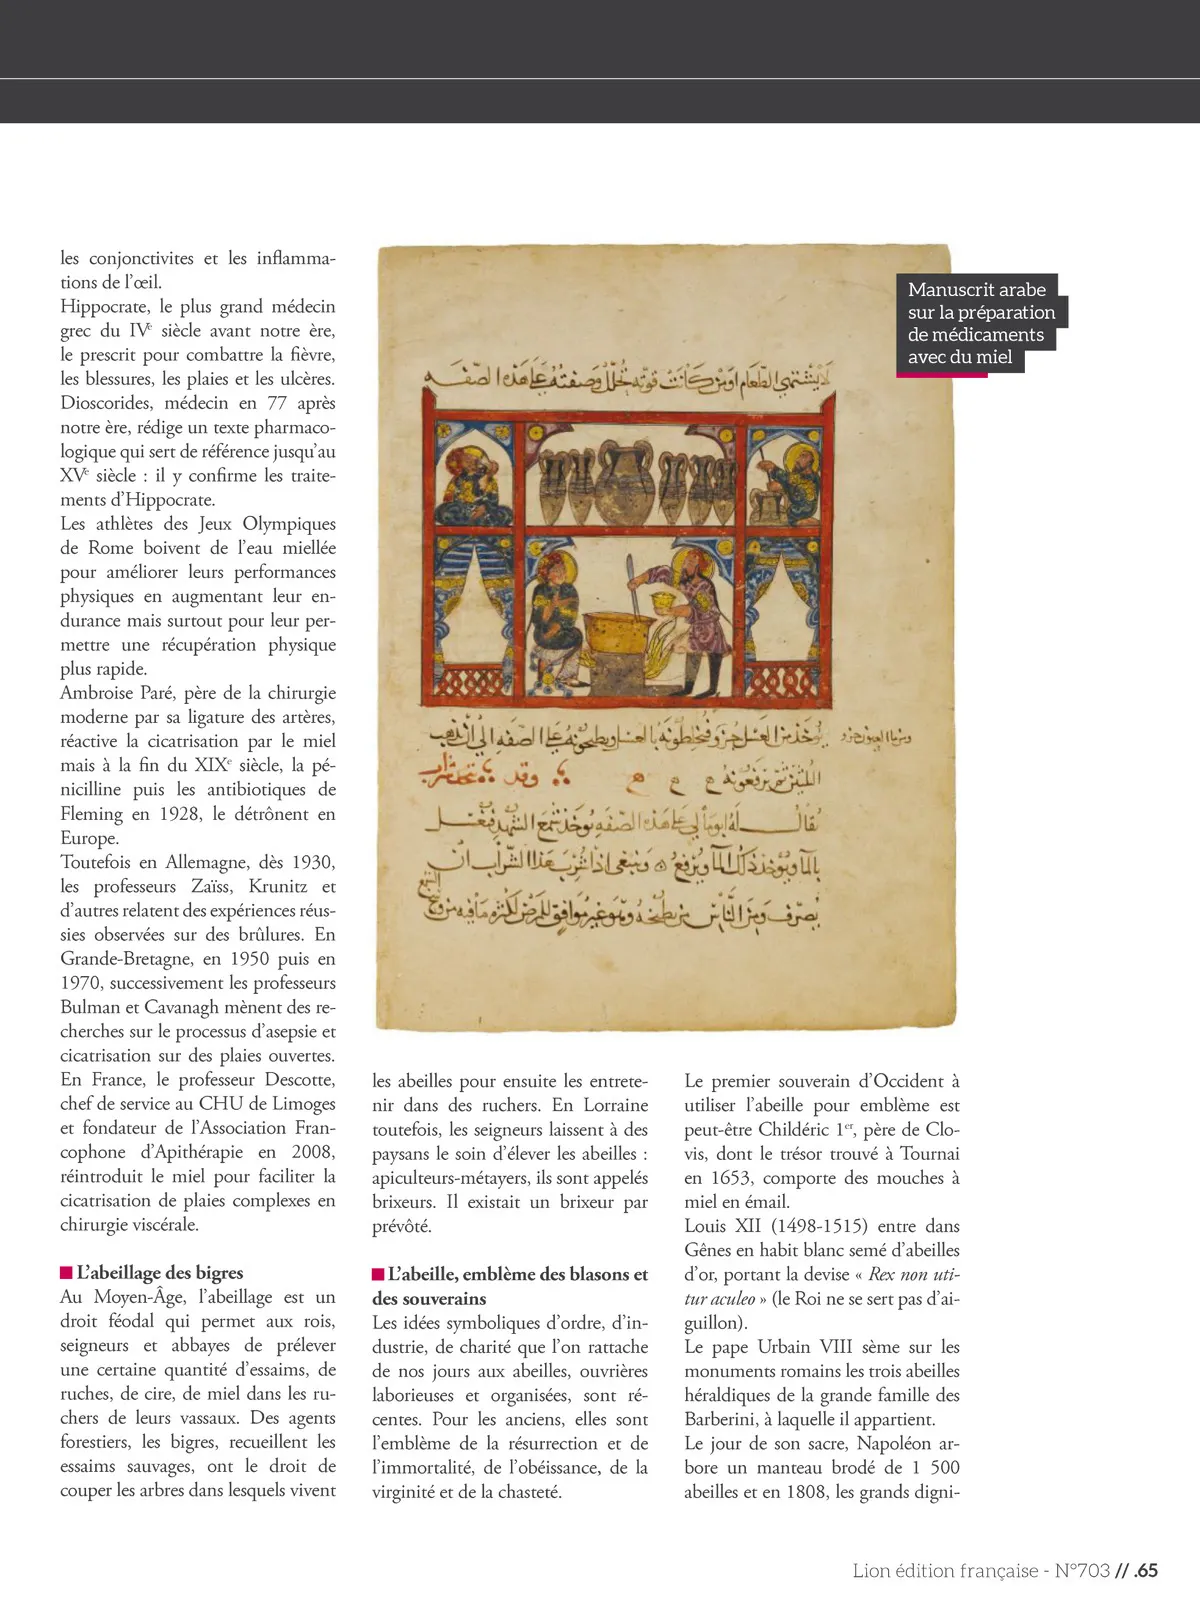 les conjonctivites et les inflamma-
tions de l’œil.
Hippocrate, le plus grand médecin
grec du IVe siècle avant notre ère,
le prescrit pour combattre la fièvre,
les blessures, les plaies et les ulcères.
Dioscorides, médecin en 77 après
notre ère, rédige un texte pharmaco-
logique qui sert de référence jusqu’au
XVe siècle : il y confirme les traite-
ments d’Hippocrate.
Les athlètes des Jeux Olympiques
de Rome boivent de l’eau miellée
pour améliorer leurs performances
physiques en augmentant leur en-
durance mais surtout pour leur per-
mettre une récupération physique
plus rapide.
Ambroise Paré, père de la chirurgie
moderne par sa ligature des artères,
réactive la cicatrisation par le miel
mais à la fin du XIXe siècle, la pé-
nicilline puis les antibiotiques de
Fleming en 1928, le détrônent en
Europe.
Toutefois en Allemagne, dès 1930,
les professeurs Zaïss, Krunitz et
d’autres relatent des expériences réus-
sies observées sur des brûlures. En
Grande-Bretagne, en 1950 puis en
1970, successivement les professeurs
Bulman et Cavanagh mènent des re-
cherches sur le processus d’asepsie et
cicatrisation sur des plaies ouvertes.
En France, le professeur Descotte,
chef de service au CHU de Limoges
et fondateur de l’Association Fran-
cophone d’Apithérapie en 2008,
réintroduit le miel pour faciliter la
cicatrisation de plaies complexes en
chirurgie viscérale.
L’abeillage des bigres
Au Moyen-Âge, l’abeillage est un
droit féodal qui permet aux rois,
seigneurs et abbayes de prélever
une certaine quantité d’essaims, de
ruches, de cire, de miel dans les ru-
chers de leurs vassaux. Des agents
forestiers, les bigres, recueillent les
essaims sauvages, ont le droit de
couper les arbres dans lesquels vivent
Manuscrit arabe
sur la préparation
de médicaments
avec du miel
les abeilles pour ensuite les entrete-
nir dans des ruchers. En Lorraine
toutefois, les seigneurs laissent à des
paysans le soin d’élever les abeilles :
apiculteurs-métayers, ils sont appelés
brixeurs. Il existait un brixeur par
prévôté.
L’abeille, emblème des blasons et
des souverains
Les idées symboliques d’ordre, d’in-
dustrie, de charité que l’on rattache
de nos jours aux abeilles, ouvrières
laborieuses et organisées, sont ré-
centes. Pour les anciens, elles sont
l’emblème de la résurrection et de
l’immortalité, de l’obéissance, de la
virginité et de la chasteté.
Le premier souverain d’Occident à
utiliser l’abeille pour emblème est
peut-être Childéric 1er, père de Clo-
vis, dont le trésor trouvé à Tournai
en 1653, comporte des mouches à
miel en émail.
Louis XII (1498-1515) entre dans
Gênes en habit blanc semé d’abeilles
d’or, portant la devise « Rex non uti-
tur aculeo » (le Roi ne se sert pas d’ai-
guillon).
Le pape Urbain VIII sème sur les
monuments romains les trois abeilles
héraldiques de la grande famille des
Barberini, à laquelle il appartient.
Le jour de son sacre, Napoléon ar-
bore un manteau brodé de 1 500
abeilles et en 1808, les grands digni-
Lion édition française - N°703 // .65